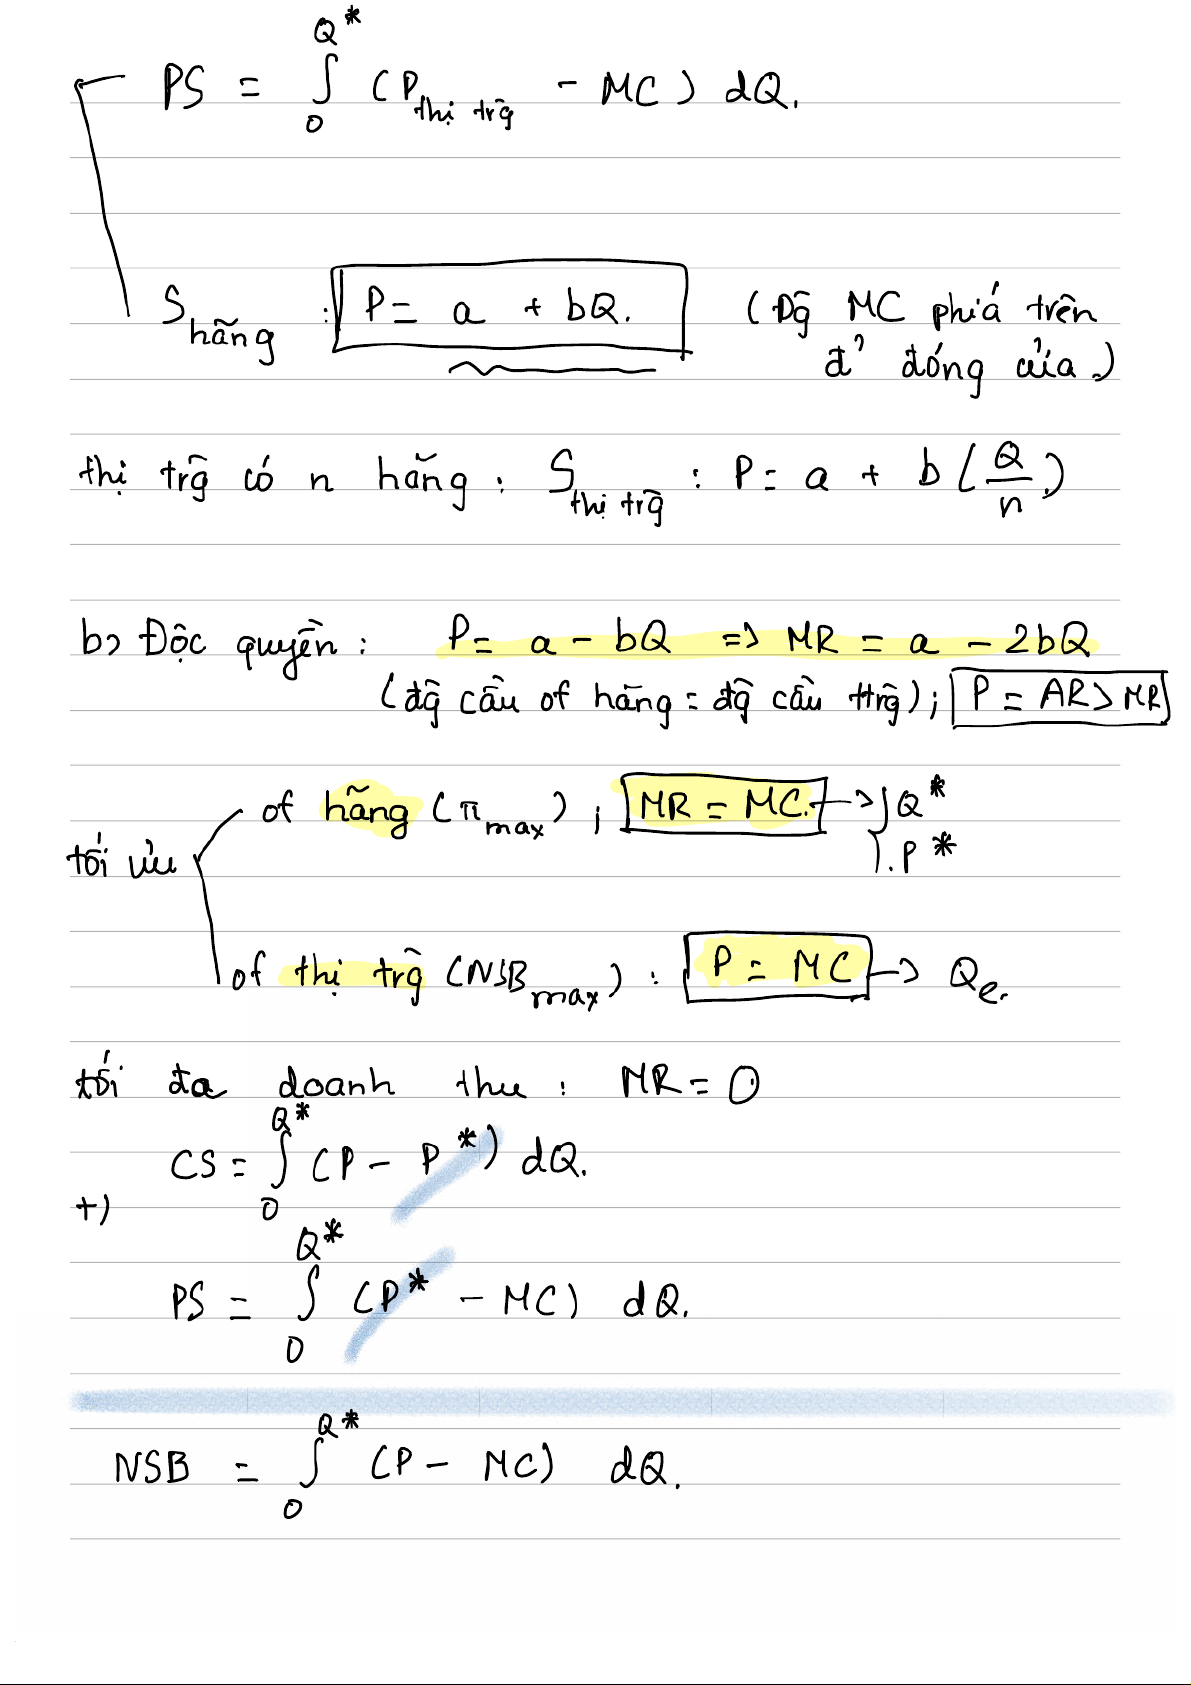 PS = ∫₀^Q* (P thị trg̃ - MC) dQ.
S hãng : P = a + bQ. (Đg̃ MC phiá trên
đ' đóng cửa.)
thị trg̃ có n hãng : S thị trg̃ : P = a + b (Q/n)
b) Độc quyền : P = a - bQ => MR = a - 2bQ
(đg̃ cầu of hãng = đg̃ cầu ttrg̃) ; P = AR > MR
of hãng (π max) ; MR = MC. → Q*
tối ưu P*
of thị trg̃ (NSB max) : P = MC → Qe.
tối đa doanh thu : MR = 0
CS = ∫₀^Q* (P - P*) dQ.
+)
PS = ∫₀^Q* (P* - MC) dQ.
NSB = ∫₀^Q* (P - MC) dQ.